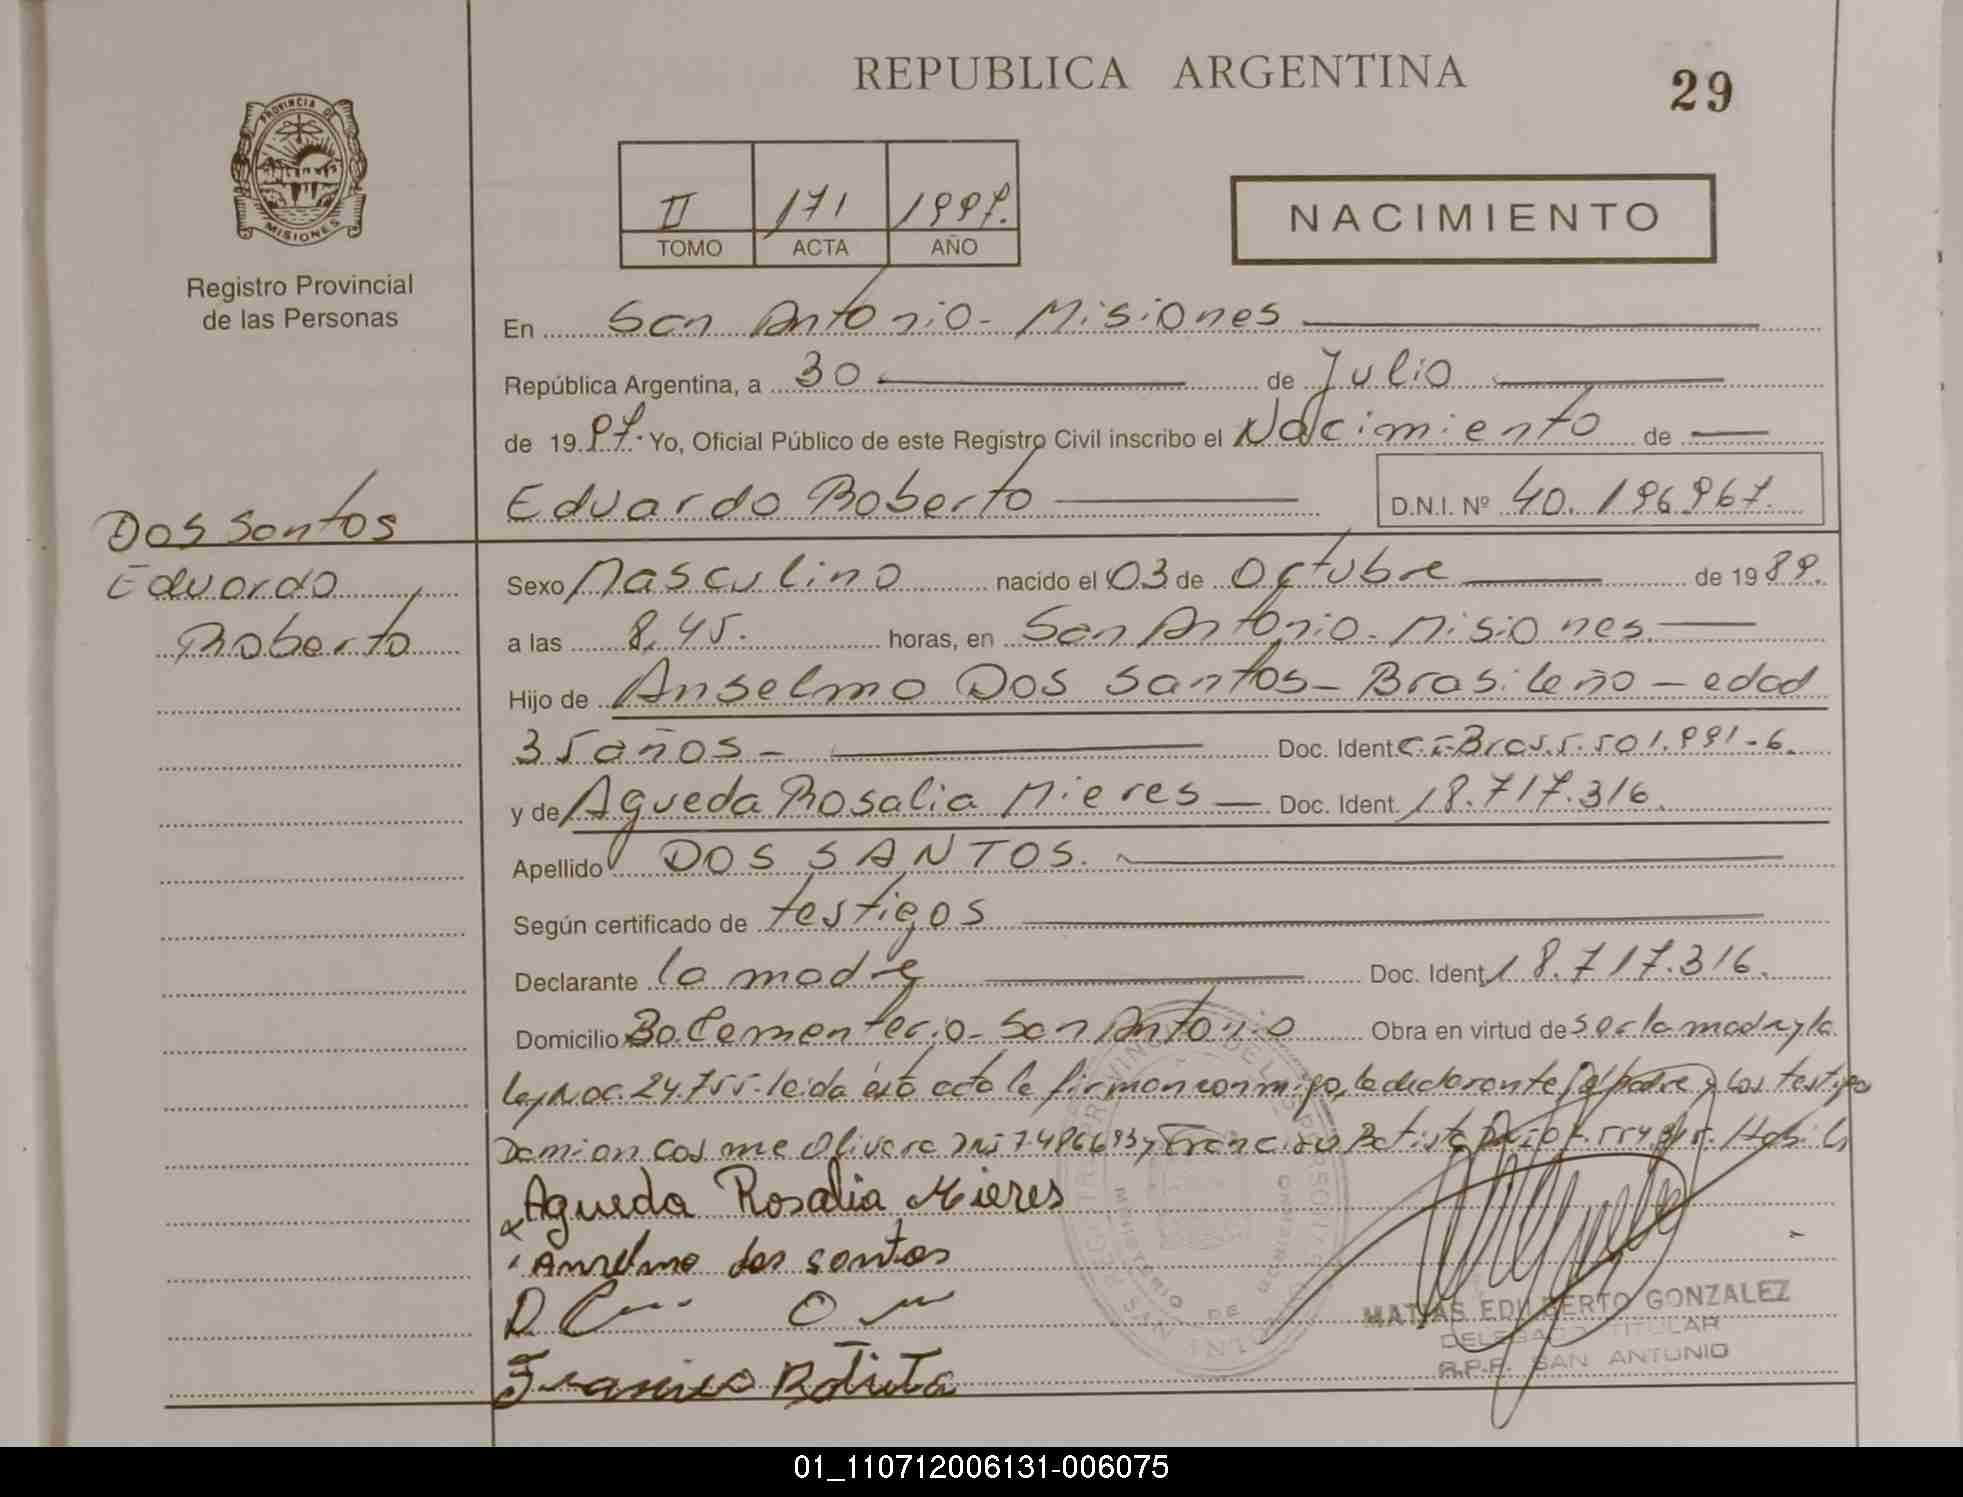 REPUBLICA ARGENTINA
29
PROVINCIA DE
MISIONES
Registro Provincial
de las Personas
II 171 1997.
TOMO ACTA AÑO
NACIMIENTO
En San Antonio - Misiones
República Argentina, a 30 de Julio
de 1997. Yo, Oficial Público de este Registro Civil inscribo el Nacimiento de
Eduardo Roberto D.N.I. Nº 40.196967.
Dos Santos
Eduardo
Roberto
Sexo Masculino nacido el 03 de Octubre de 1989.
a las 8,45. horas, en San Antonio - Misiones.
Hijo de Anselmo Dos Santos - Brasileño - edad
35 años - Doc. Ident. C.I. Bras. 5.501.991-6.
y de Agueda Rosalia Mieres Doc. Ident. 18.717.316.
Apellido DOS SANTOS.
Según certificado de testigos
Declarante la madre Doc. Ident. 18.717.316.
Domicilio Bo Cementerio - San Antonio Obra en virtud de ser la madre y la
ley Nac. 24.755. leida ésta acta la firman conmigo, la declarante, el padre y los testigo
Damian Cosme Olivera DNI 7.486693 y Francisco Batista
Agueda Rosalia Mieres
Anselmo dos santos
Francisco Batista
MATIAS EDILBERTO GONZALEZ
DELEGADO TITULAR
R.P.P. SAN ANTONIO
01_110712006131-006075